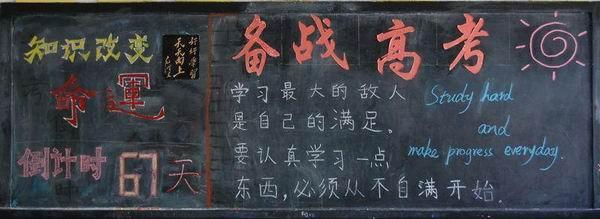 知识改变
命運
倒计时 67 天
好好学习
天天向上
备战高考
学习最大的敌人
是自己的满足。
要认真学习一点
东西，必须从不自满开始。
Study hard
and
make progress everyday.